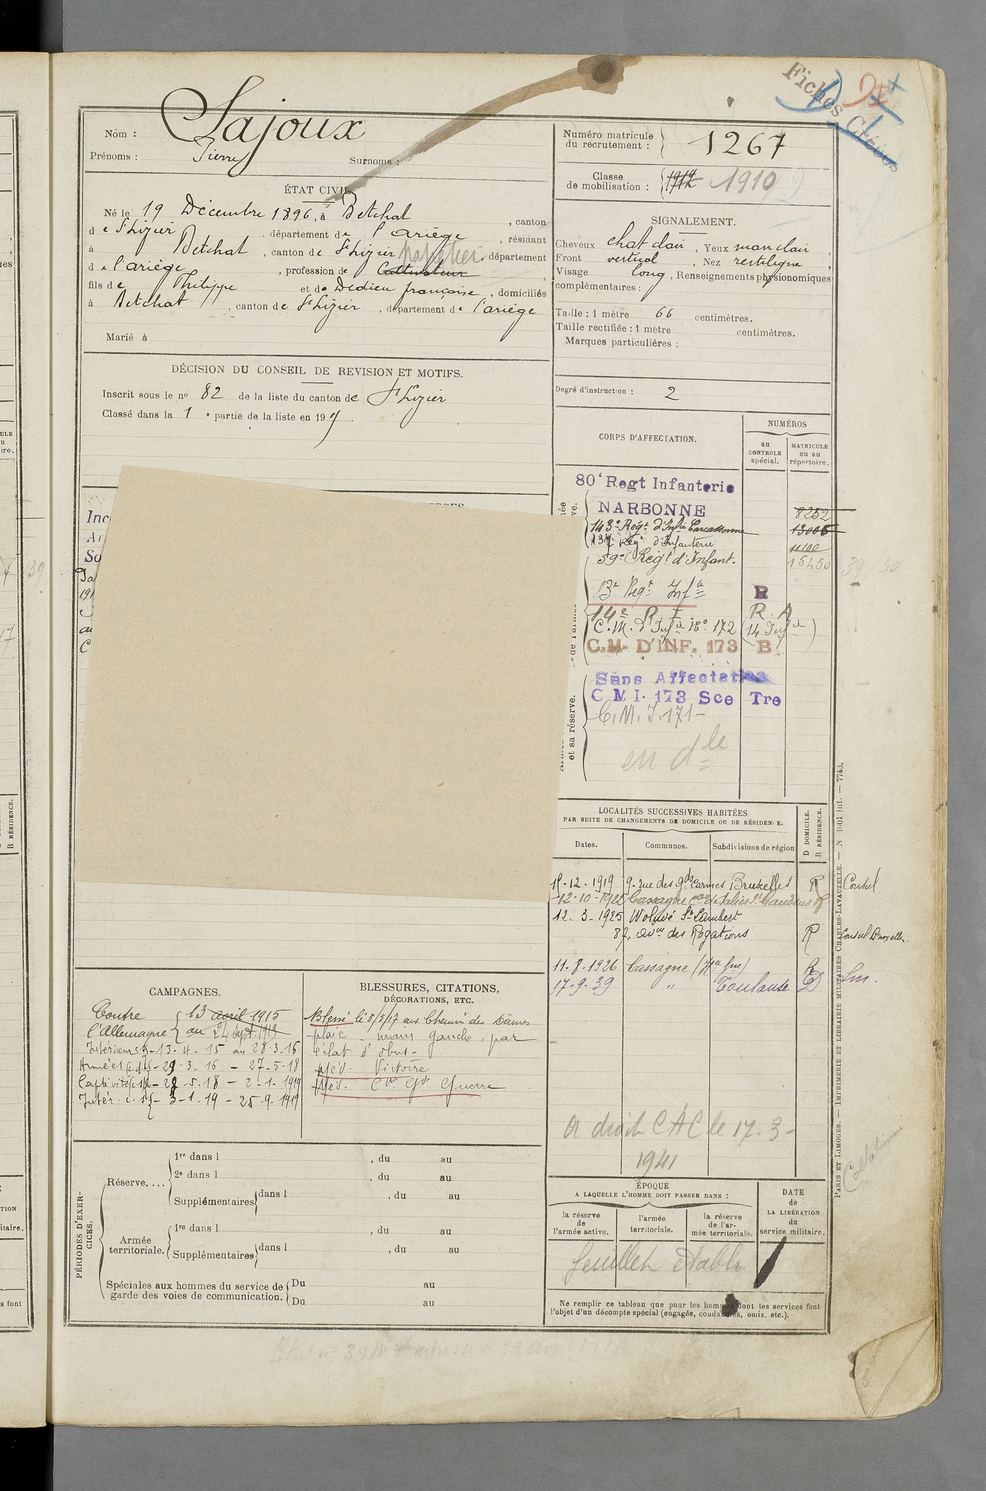 Fiches
Nom : Lajoux
Prénoms : Pierre Surnoms :
Numéro matricule du recrutement : 1267
Classe de mobilisation : 1910
ÉTAT CIVIL.
Né le 19 Décembre 1896, à Betchat, canton
de St Lizier, département de l'Ariège, résidant
à Betchat, canton de St Lizier, département
de l'ariège, profession de Cultivateur papetier
fils de Philippe et de Dedieu françoise, domiciliés
à Betchat, canton de St Lizier, département de l'ariège
Marié à
SIGNALEMENT.
Cheveux chat clair, Yeux marr clair,
Front vertical, Nez rectiligne,
Visage long, Renseignements physionomiques
complémentaires :
Taille : 1 mètre 66 centimètres.
Taille rectifiée : 1 mètre centimètres.
Marques particulières :
Degré d'instruction : 2
DÉCISION DU CONSEIL DE REVISION ET MOTIFS.
Inscrit sous le no 82 de la liste du canton de St Lizier
Classé dans la 1e partie de la liste en 191
CORPS D'AFFECTATION.
NUMÉROS
au CONTRÔLE spécial.
MATRICULE ou au répertoire.
80e Regt Infanterie
NARBONNE 8252
143e Regt d'Infrie Carcassonne 13006
Regt d'Infanterie 4100
59e Regt d'Infant. 15450
Regt Infie R
14e R I R. A
C.M. d'Infie No 172 (14 Infie)
C.M. D'INF. 173 B
Sans Affectation
C M I. 173 Sce Tre
C.M.I 171
en dle
et sa réserve.
LOCALITÉS SUCCESSIVES HABITÉES
PAR SUITE DE CHANGEMENTS DE DOMICILE OU DE RÉSIDENCE.
Dates. Communes. Subdivisions de région
D DOMICILE. R RÉSIDENCE.
15-12-1919 9. rue des gds Carmes Bruxelles R Consul
12-10-1922 Cassagne St Gaudens R
12.3-1925 Woluwé St Lambert
87, avue des Rogations R Consul Bruxelles
11-8-1926 Cassagne (Hte Gne) R
17-9-39 " Toulouse D
a droit CAC le 17-3-
1941
CAMPAGNES.
Contre l'Allemagne 13 avril 1915
au 24 Sept. 1919
Intérieur - 13-4-15 au 28-3-16
Armées - 29-3-16 - 27-5-18
Captivité - 28-5-18 - 2-1-1919
Intér. - 3-1-19 - 25-9-1919
BLESSURES, CITATIONS,
DÉCORATIONS, ETC.
Blessé le 8/5/17 aux Chemin des Dames
plaie main gauche, par
éclat d'obus.
Méd. Victoire
Méd. Cve Gde Guerre
PÉRIODES D'EXERCICES.
Réserve....
1re dans l , du au
2e dans l , du au
Supplémentaires dans l , du au
Armée territoriale.
1re dans l , du au
Supplémentaires dans l , du au
Spéciales aux hommes du service de garde des voies de communication.
Du au
Du au
ÉPOQUE
A LAQUELLE L'HOMME DOIT PASSER DANS :
la réserve de l'armée active.
l'armée territoriale.
la réserve de l'armée territoriale.
DATE de LA LIBÉRATION du service militaire.
feuillet établi
Ne remplir ce tableau que pour les hommes dont les services font
l'objet d'un décompte spécial (engagés, condamnés, omis, etc.).
PARIS ET LIMOGES. — IMPRIMERIE ET LIBRAIRIE MILITAIRES CHARLES-LAVAUZELLE. — N° 1001 int. — 7745.